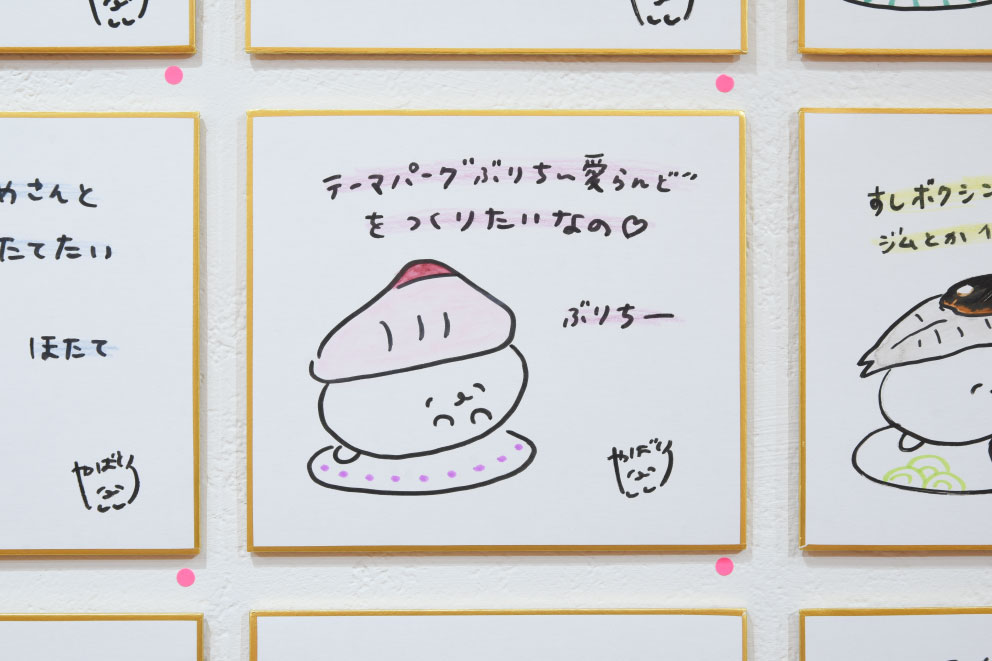 めさんと
たてたい
ほたて
やばい
テーマパークﾞぶりちー愛らんど
をつくりたいなの♡
ぶりちー
やばい
すしボクシン
ジムとか